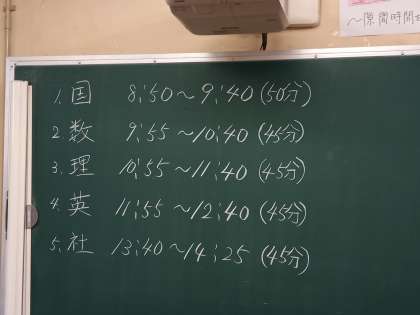 ～隙間時間
1. 国 8:50～9:40 (50分)
2. 数 9:55～10:40 (45分)
3. 理 10:55～11:40 (45分)
4. 英 11:55～12:40 (45分)
5. 社 13:40～14:25 (45分)